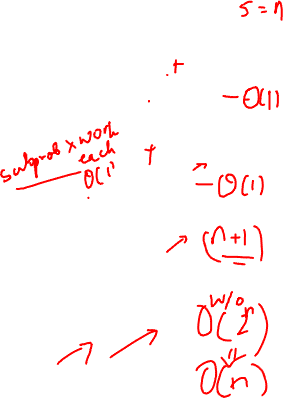 s = n
+
- O(1)
subprob x work
each
O(1)
+
- O(1)
(n+1)
w/o
O(2^n)
O(n)